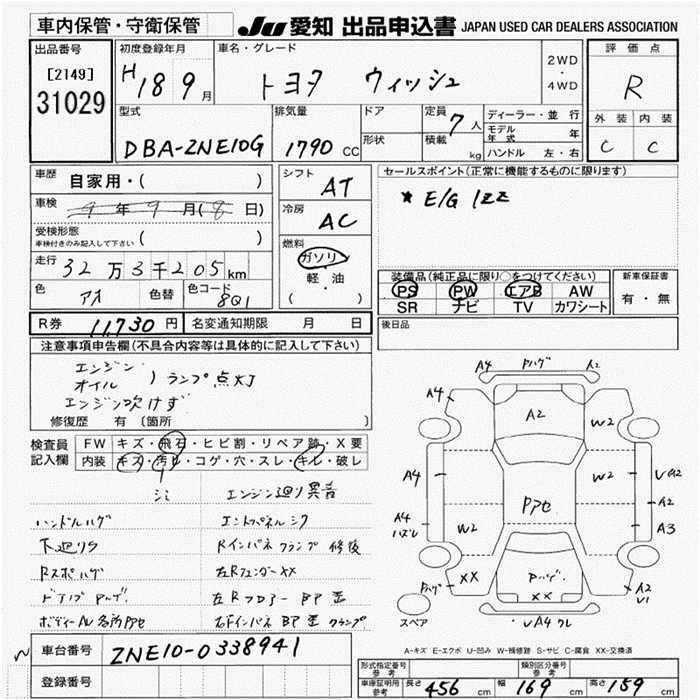 車内保管・守衛保管
JU 愛知 出品申込書 JAPAN USED CAR DEALERS ASSOCIATION
出品番号
[2149]
31029
初度登録年月
H 18 9月
車名・グレード
トヨタ ウィッシュ
2WD
・
4WD
評価点
R
外装 内装
C C
型式
DBA-ZNE10G
排気量
1790 CC
ドア
形状
定員
7人
積載
kg
ディーラー・並行
モデル年式 年
ハンドル 左・右
車歴 自家用・( )
車検 9年9月(8日)
受検形態
車検付きのみ記入して下さい ( )
走行 32万3千205km
色 アオ 色替 色コード 8Q1
シフト AT
冷房 AC
燃料
ガソリン
軽・油
( )
セールスポイント(正常に機能するものに限ります)
* E/G 1ZZ
装備品(純正品に限り○をつけてください)
PS PW エアB AW
SR ナビ TV カワシート
新車保証書
有・無
後日品
R券 11,730円 名変通知期限 月 日
注意事項申告欄(不具合内容等は具体的に記入して下さい)
エンジン
オイル )ランプ点灯
エンジン吹けず
修復歴 有 〔箇所 〕
検査員
記入欄
FW キズ・飛石・ヒビ割・リペア跡・X要
内装 キズ・汚れ・コゲ・穴・スレ・キレ・破レ
シミ エンジン廻り異音
ハンドルハゲ
下廻りS
Rインパネ クランプ 修復
Rスポハゲ
左Rフェンダー XX
左Rフロアー BP歪
右Fインパネ BP歪 クランプ
A4 Pハゲ A2
A4
A2
W2
A4
W2
UA2
A2
A4
ハズレ
W2
PアセA3
Pハゲ
XX
Pハゲ
XX
A2
U1
スペア
UA4 ワレ
A-キズ E-エクボ U-凹み W-補修跡 S-サビ C-腐食 XX-交換済
車台番号 ZNE10-0338941
登録番号
形式指定番号
参考
類別区分番号
参考
車庫証明用
参考
長さ 456 cm 幅 169 cm 高さ 159 cm